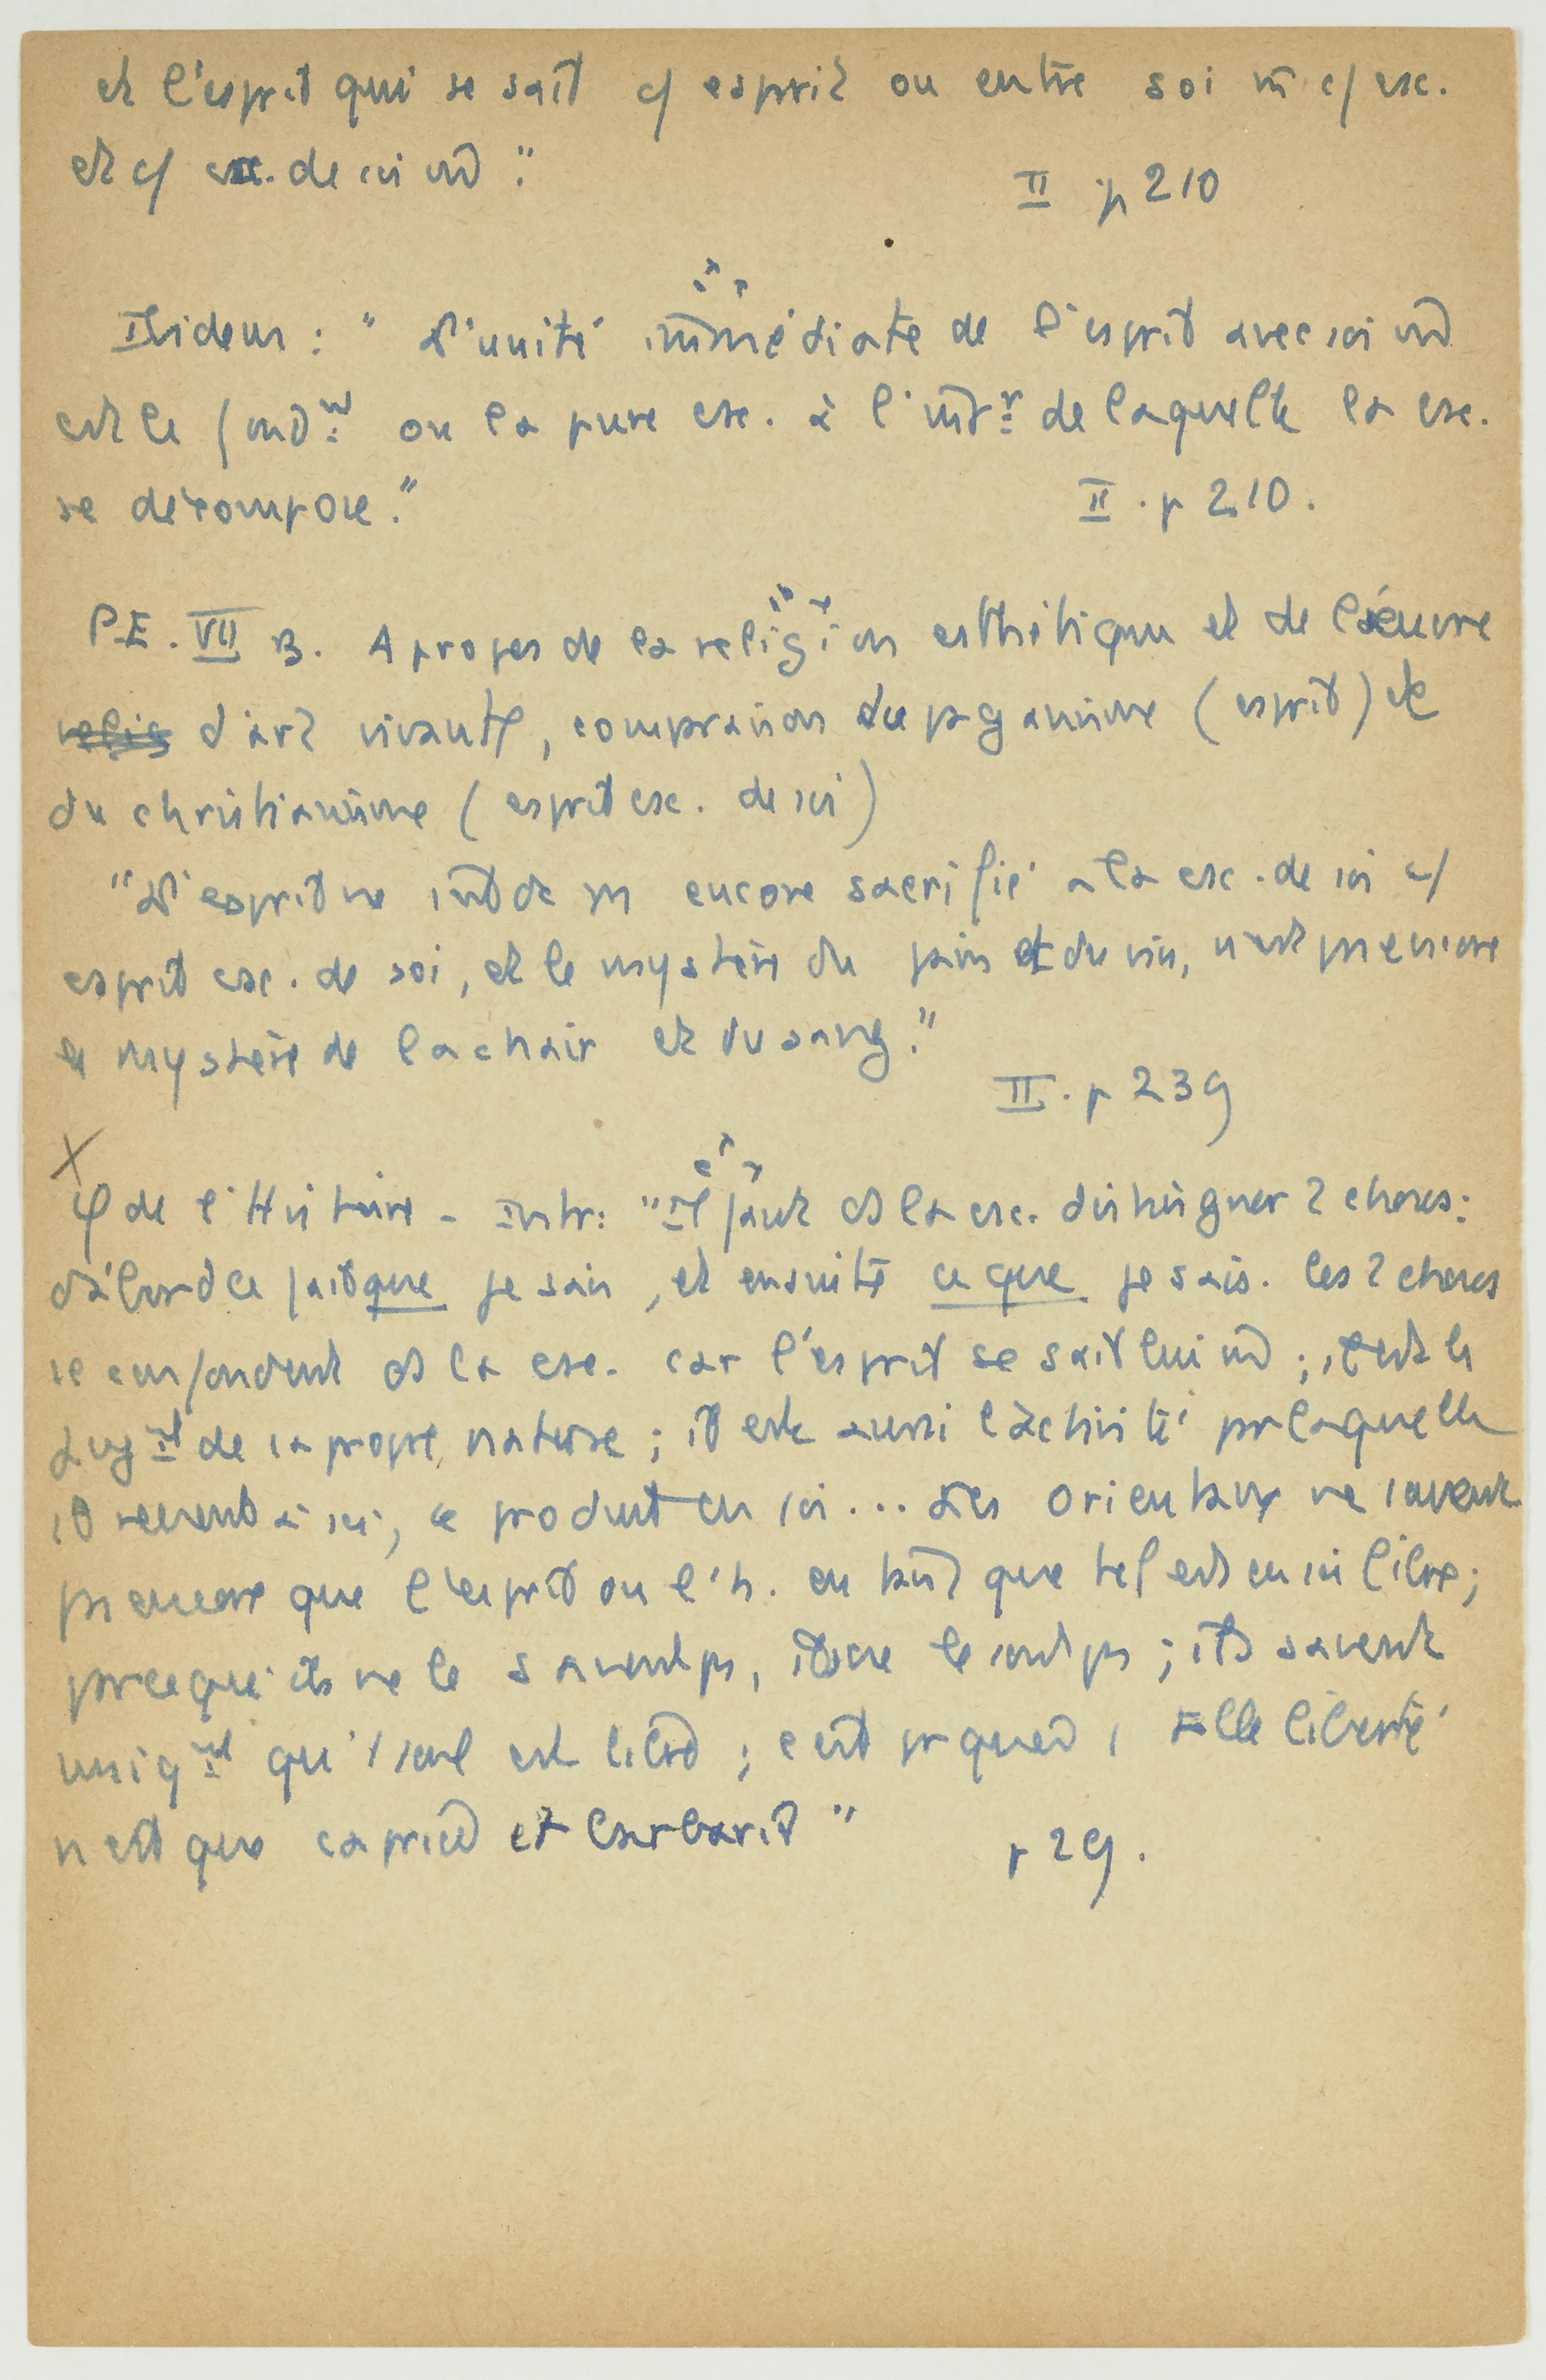 et l'esprit qui se sait c/ esprit ou entre soi m̄ c/ csc.
et c/ csc. de soi m̄ :"
II p 210
Ibidem : " L'unité immédiate de l'esprit avec soi m̄
est le fondt ou la pure csc. à l'intr de laquelle la csc.
se décompose."
II . p 210.
P.E. VII B. A propos de la religion esthétique et de l'œuvre
relig d'art vivante, comparaison du paganisme (esprit) et
du christianisme (esprit csc. de soi)
"L'esprit ne s'est dc ps encore sacrifié à la csc. de soi c/
esprit csc. de soi, et le mystère du pain et du vin, n'est ps encore
le mystère de la chair et du sang."
II . p 239
X
φ de l'Histoire - Intr: "Il faut ds la csc. distinguer 2 choses:
d'abord le fait que je sais, et ensuite ce que je sais. les 2 choses
se confondent ds la csc. car l'esprit se sait lui m̄ ; il est le
jugt de sa propre nature ; il est aussi l'activité pr laquelle
il revient à soi, se produit en soi ... Les Orientaux ne savent
ps encore que l'esprit ou l'h. en tant que tel est en soi libre ;
parce qu'ils ne le savent ps, ils ne le sont ps ; ils savent
uniqt qu'1 seul est libre ; c'est pr quoi 1 telle liberté
n'est que caprice et barbarie "
p 29.